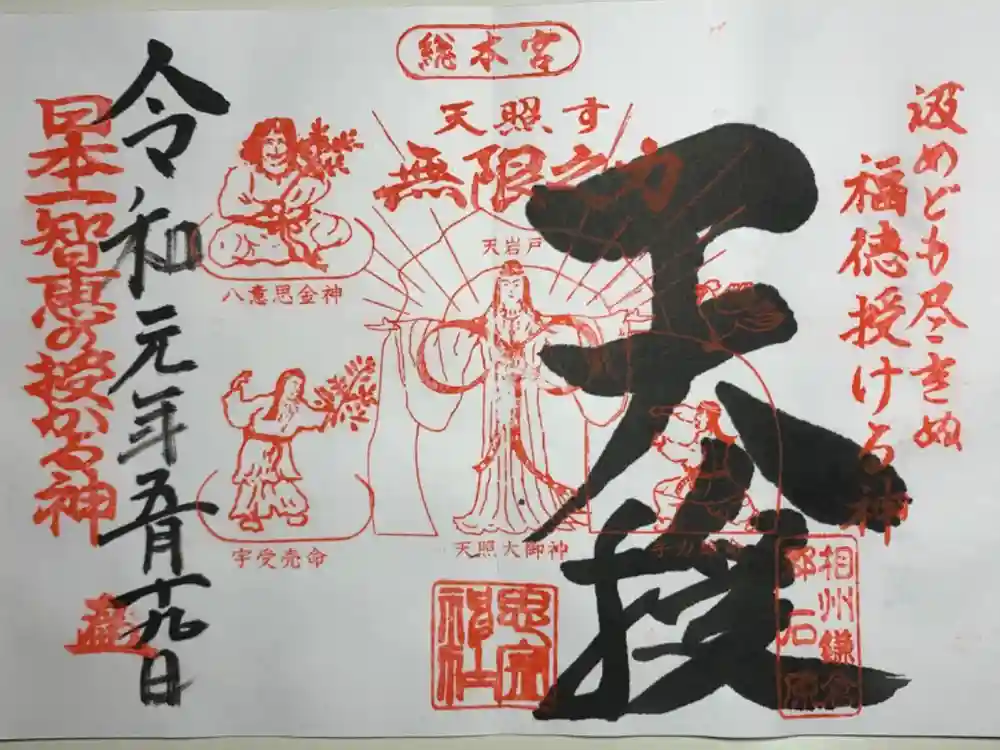 総本宮
天照す
無限之力
汲めども尽きぬ
福徳授ける神
天授
天岩戸
八意思金神
宇受売命
天照大御神
思金
神社
相州鎌倉
郡石原
令和元年五月十九日
日本一智恵の授かる神